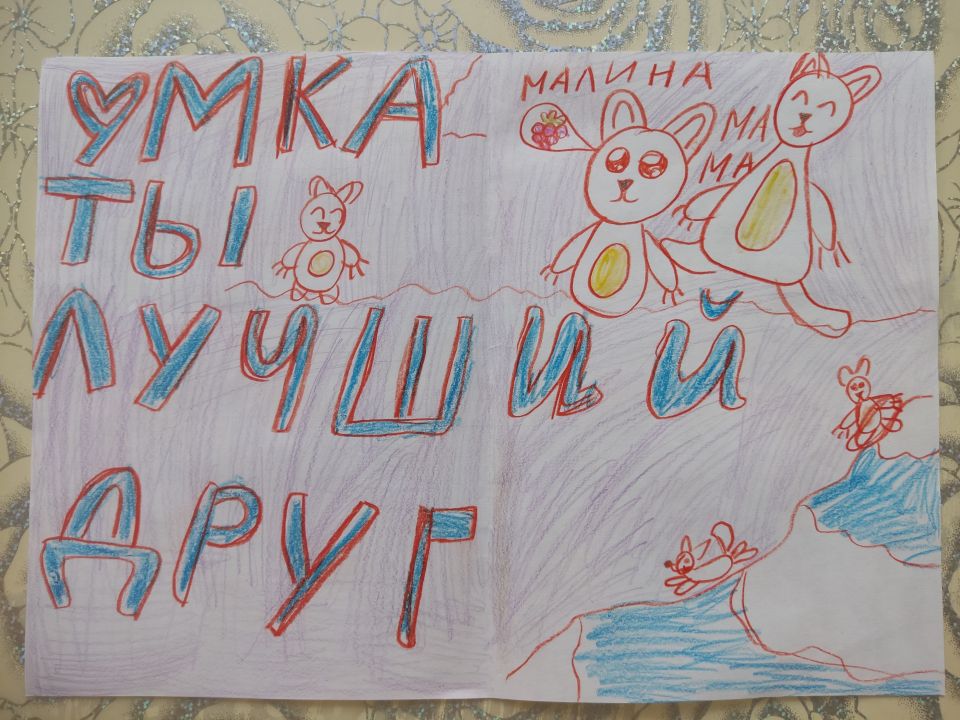 УМКА
ТЫ
ЛУЧШИЙ
ДРУГ
МАЛИНА
МА
МА